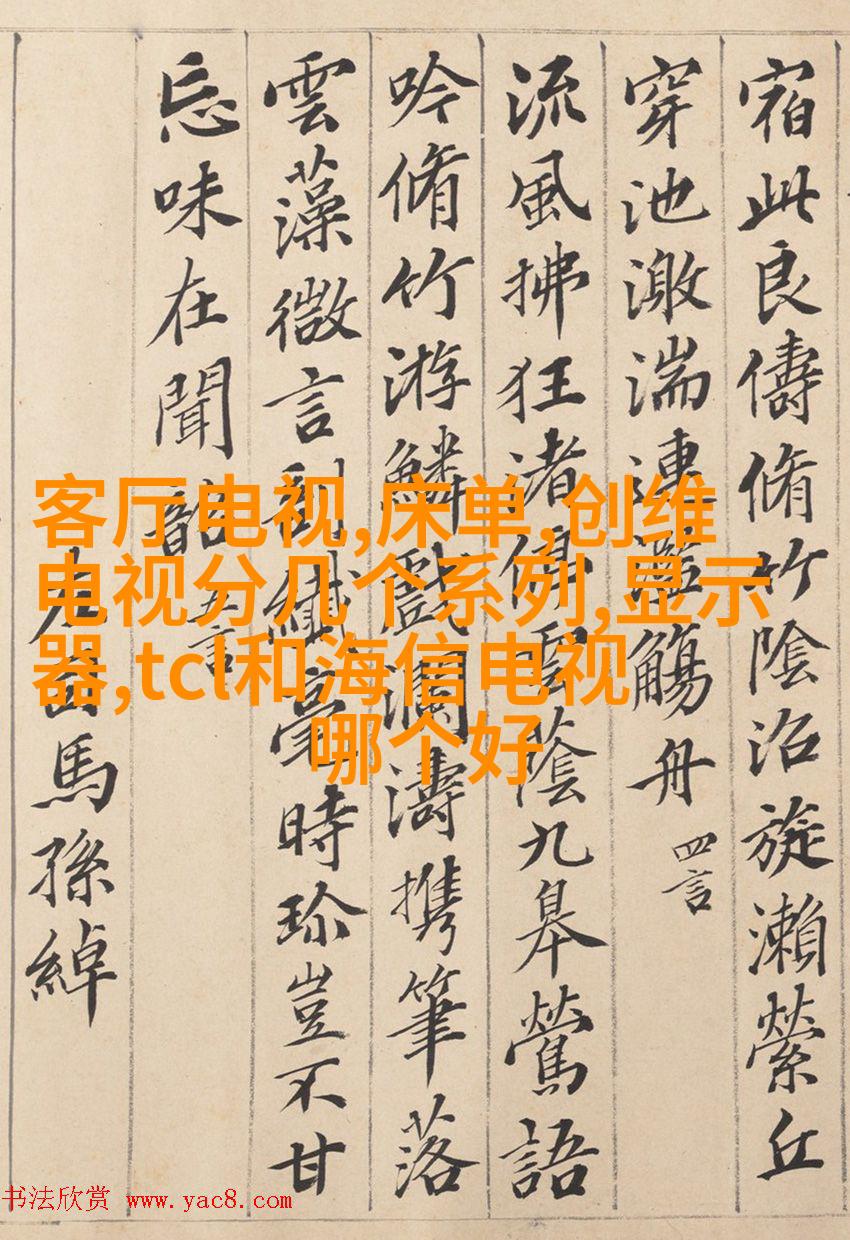 宿此良儔脩竹陰沼旋瀬縈丘
穿池激湍連濫觴舟 四言
流風拂狂渚停雲蔭九皋鶯語
吟脩竹游鱗戲瀾濤携筆落
雲藻微言剖纖毫時珍豈不甘
忘味在聞韶 五言
左司馬孫綽
客厅电视,床单,创维
电视分几个系列,显示
器,tcl和海信电视
哪个好
书法欣赏 www.yac8.com